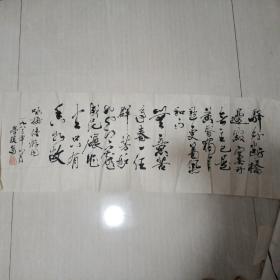 驿外断桥
边寂寞开
无主已是
黄昏独自
愁更著风
和雨
无意苦
争春一任
群芳妒
零落
成泥碾作
尘只有
香如故
咏梅陆游词
一九八三年八月